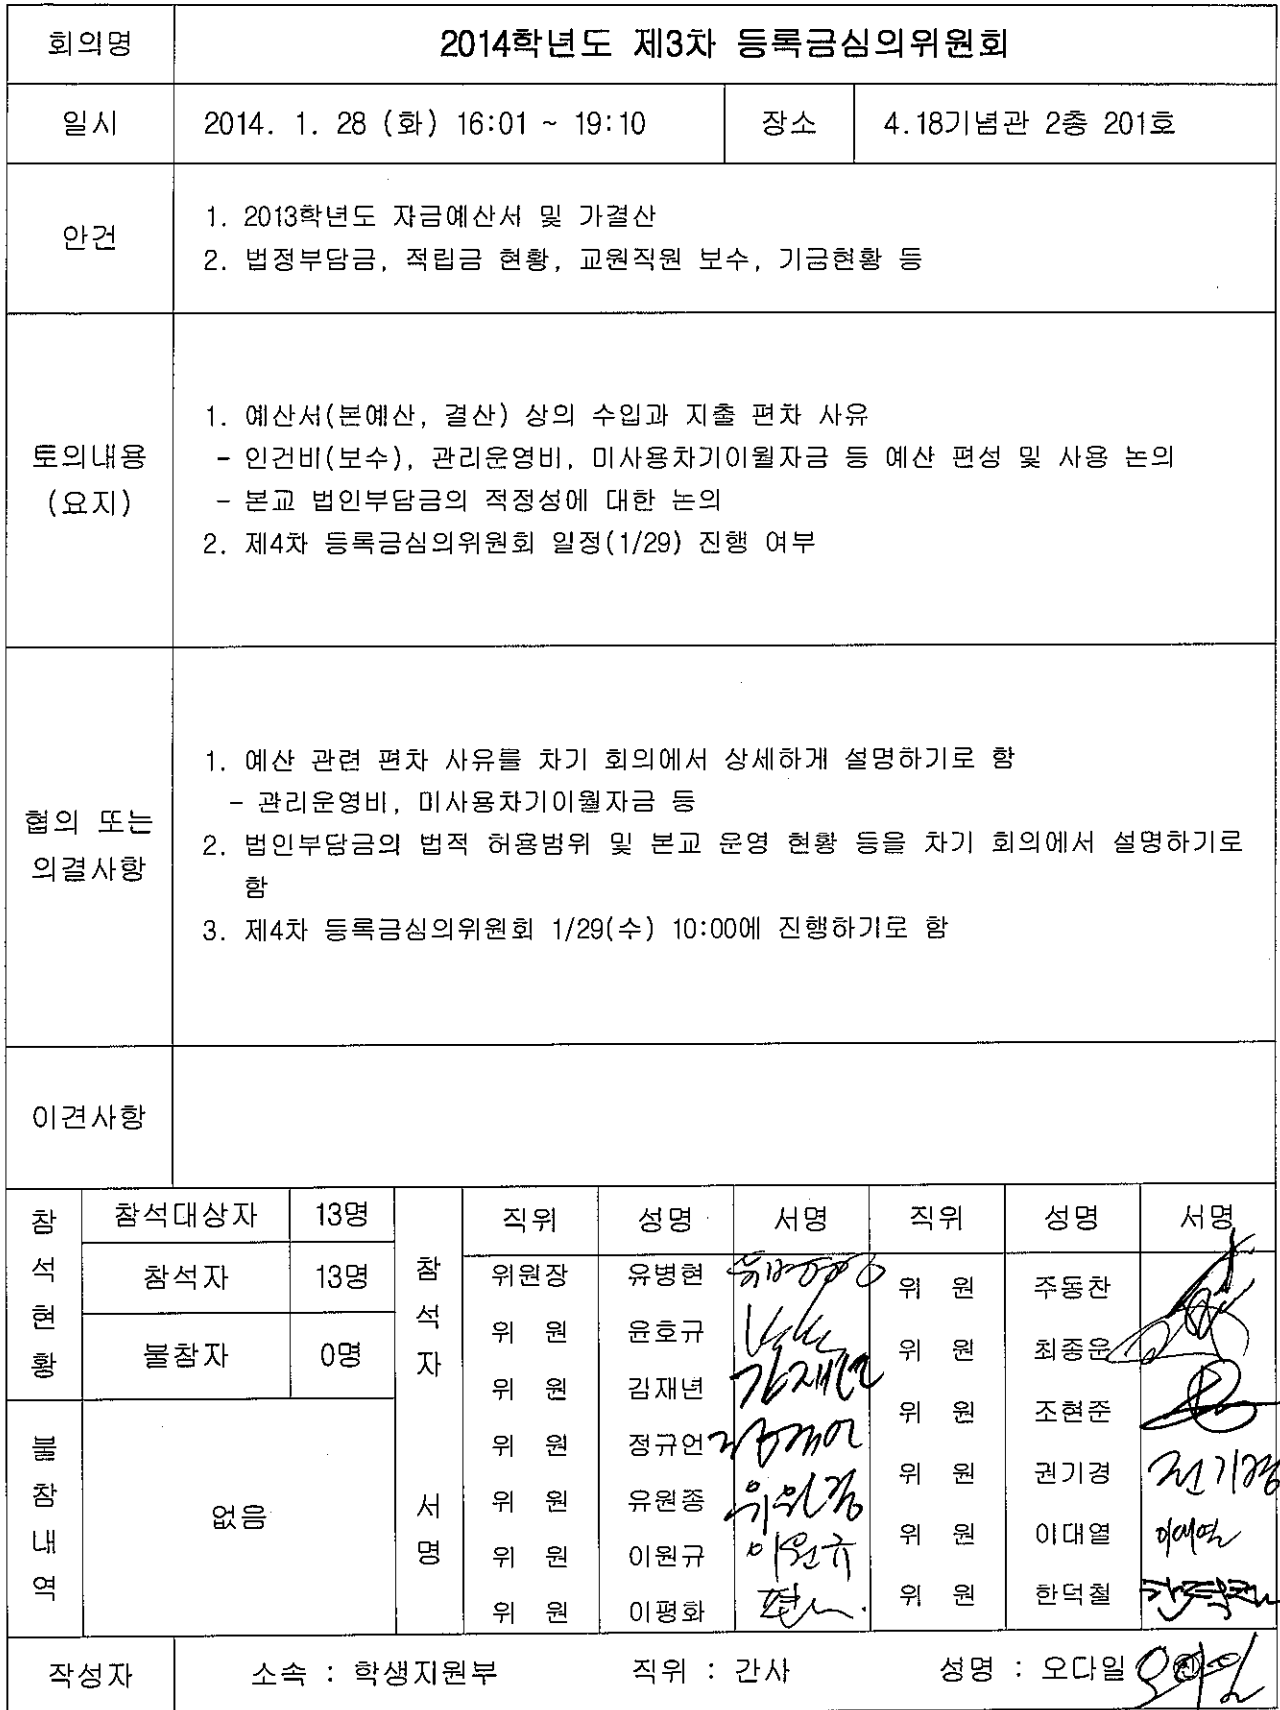 회의명 2014학년도 제3차 등록금심의위원회
일시 2014. 1. 28 (화) 16:01 ~ 19:10 장소 4.18기념관 2층 201호
안건
1. 2013학년도 자금예산서 및 가결산
2. 법정부담금, 적립금 현황, 교원직원 보수, 기금현황 등
토의내용
(요지)
1. 예산서(본예산, 결산) 상의 수입과 지출 편차 사유
- 인건비(보수), 관리운영비, 미사용차기이월자금 등 예산 편성 및 사용 논의
- 본교 법인부담금의 적정성에 대한 논의
2. 제4차 등록금심의위원회 일정(1/29) 진행 여부
협의 또는
의결사항
1. 예산 관련 편차 사유를 차기 회의에서 상세하게 설명하기로 함
- 관리운영비, 미사용차기이월자금 등
2. 법인부담금의 법적 허용범위 및 본교 운영 현황 등을 차기 회의에서 설명하기로
함
3. 제4차 등록금심의위원회 1/29(수) 10:00에 진행하기로 함
이견사항
참석현황
참석대상자 13명
참석자 13명
불참자 0명
불참내역
없음
참석자 서명
직위 성명 서명 직위 성명 서명
위원장 유병현
위 원 윤호규
위 원 김재년 김재년
위 원 정규언
위 원 유원종
위 원 이원규 이원규
위 원 이평화
위 원 주동찬
위 원 최종운
위 원 조현준
위 원 권기경
위 원 이대열 이대열
위 원 한덕철 한덕철
작성자 소속 : 학생지원부 직위 : 간사 성명 : 오다일